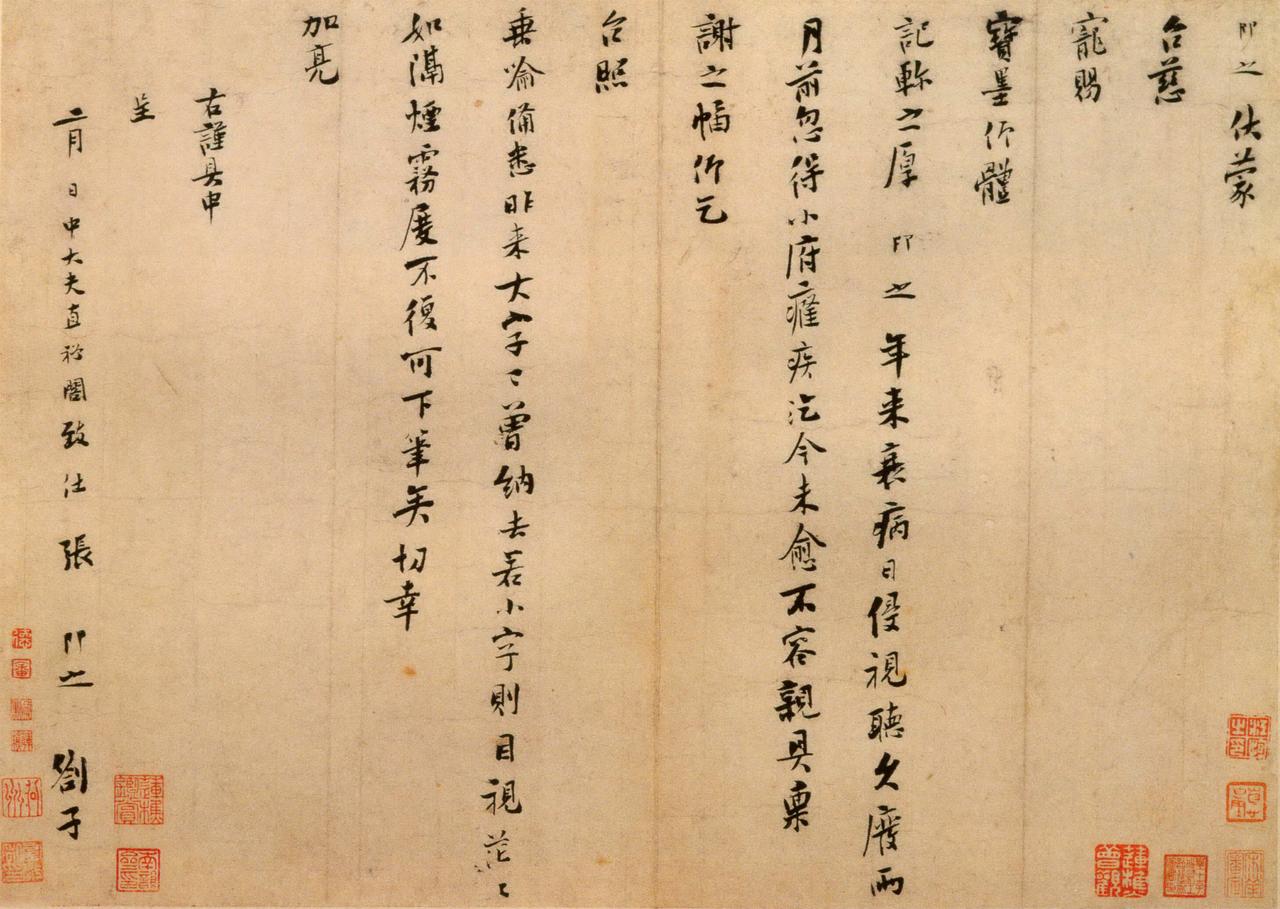 即之 伏蒙
台慈
寵賜
寶墨仰體
記軫之厚 即之 年来衰病日侵視聽久廢兩
月前忽得小府癰疾迄今未愈不容親具稟
謝之幅仰乞
台照
垂喻備悉昨来大字〻曾納去若小字則目視茫〻
如隔煙霧屡不復可下筆矣切幸
加亮
右謹具申
呈
二月 日中大夫直祕閣致仕 張 即之 劄子
蓮樵曾觀
蓮樵鑑賞